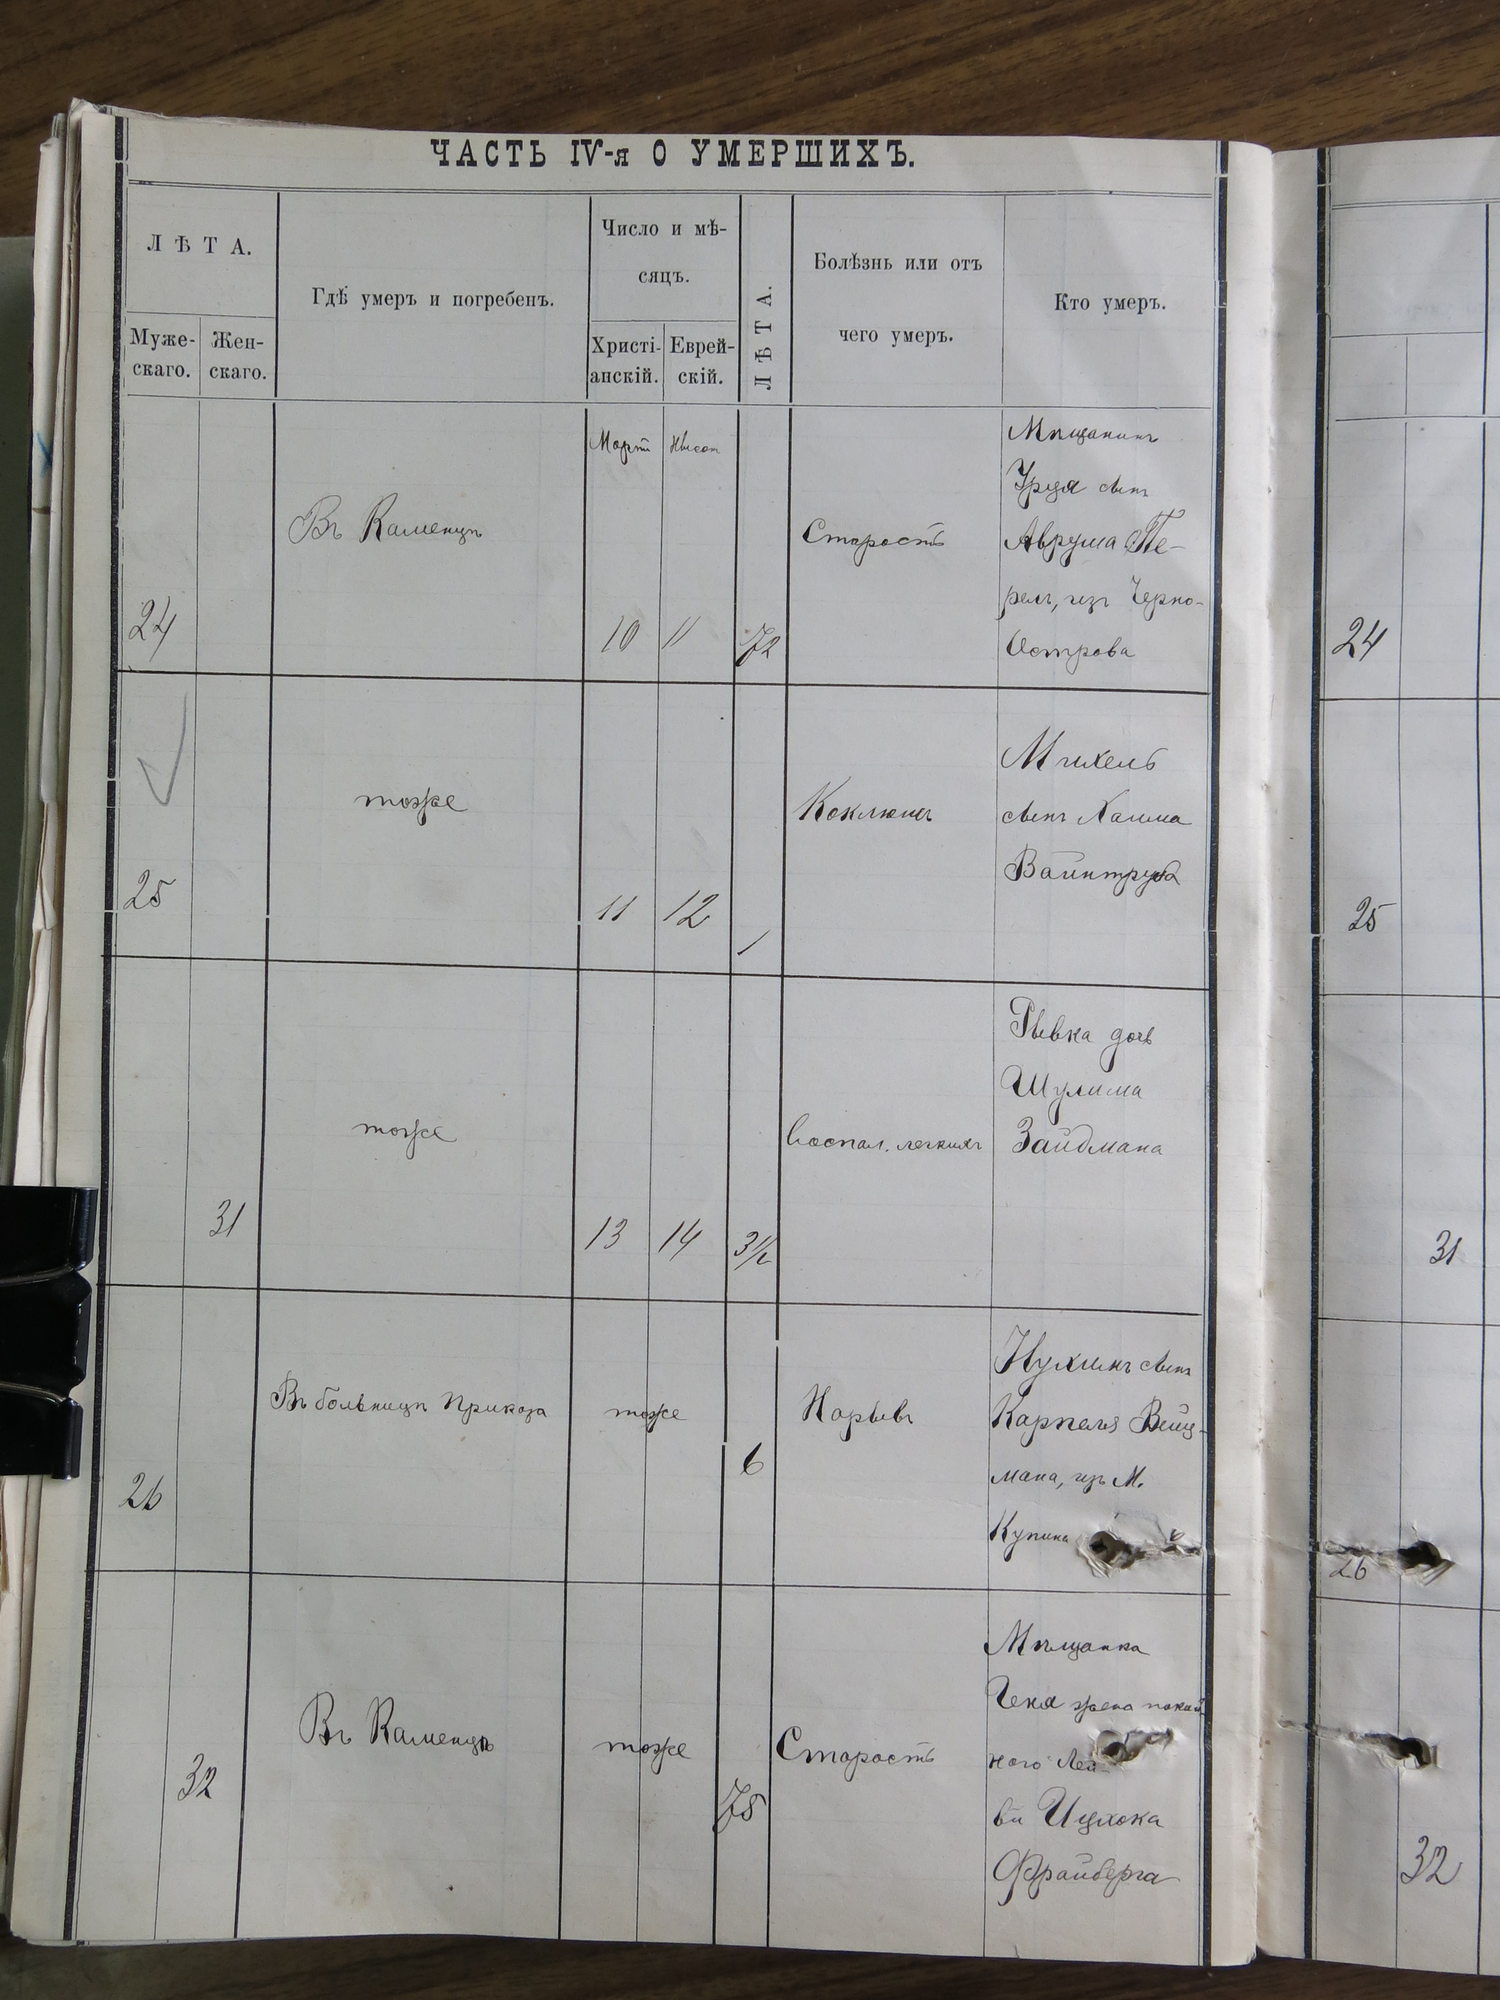 ЧАСТЬ IV-я О УМЕРШИХЪ.
ЛѢТА.
Муже-
скаго.
Жен-
скаго.
Гдѣ умеръ и погребенъ.
Число и мѣ-
сяцъ.
Христі-
анскій.
Еврей-
скій.
ЛѢТА.
Болѣзнь или отъ
чего умеръ.
Кто умеръ.
24
Въ Каменцѣ
Мартъ
10
Нисон
11
72
Старость
Мѣщанинъ
сынъ
Аврума Пе-
рель, изъ Черно-
Острова
24
25
тоже
11
12
1
Коклюшъ
Михель
сынъ Хаима
Вайнтруба
25
31
тоже
13
14
3 1/2
Воспал. легкихъ
Рывка дочь
Шулима
Зайдмана
31
26
Въ больницѣ Приказа
тоже
6
Нарывъ
Нухимъ сынъ
Карпеля Вейц-
мана, изъ М.
Купина
26
32
Въ Каменцѣ
тоже
75
Старость
Мѣщанка
жена покой
ного Лей
бы Ицхока
Фрайберга
32